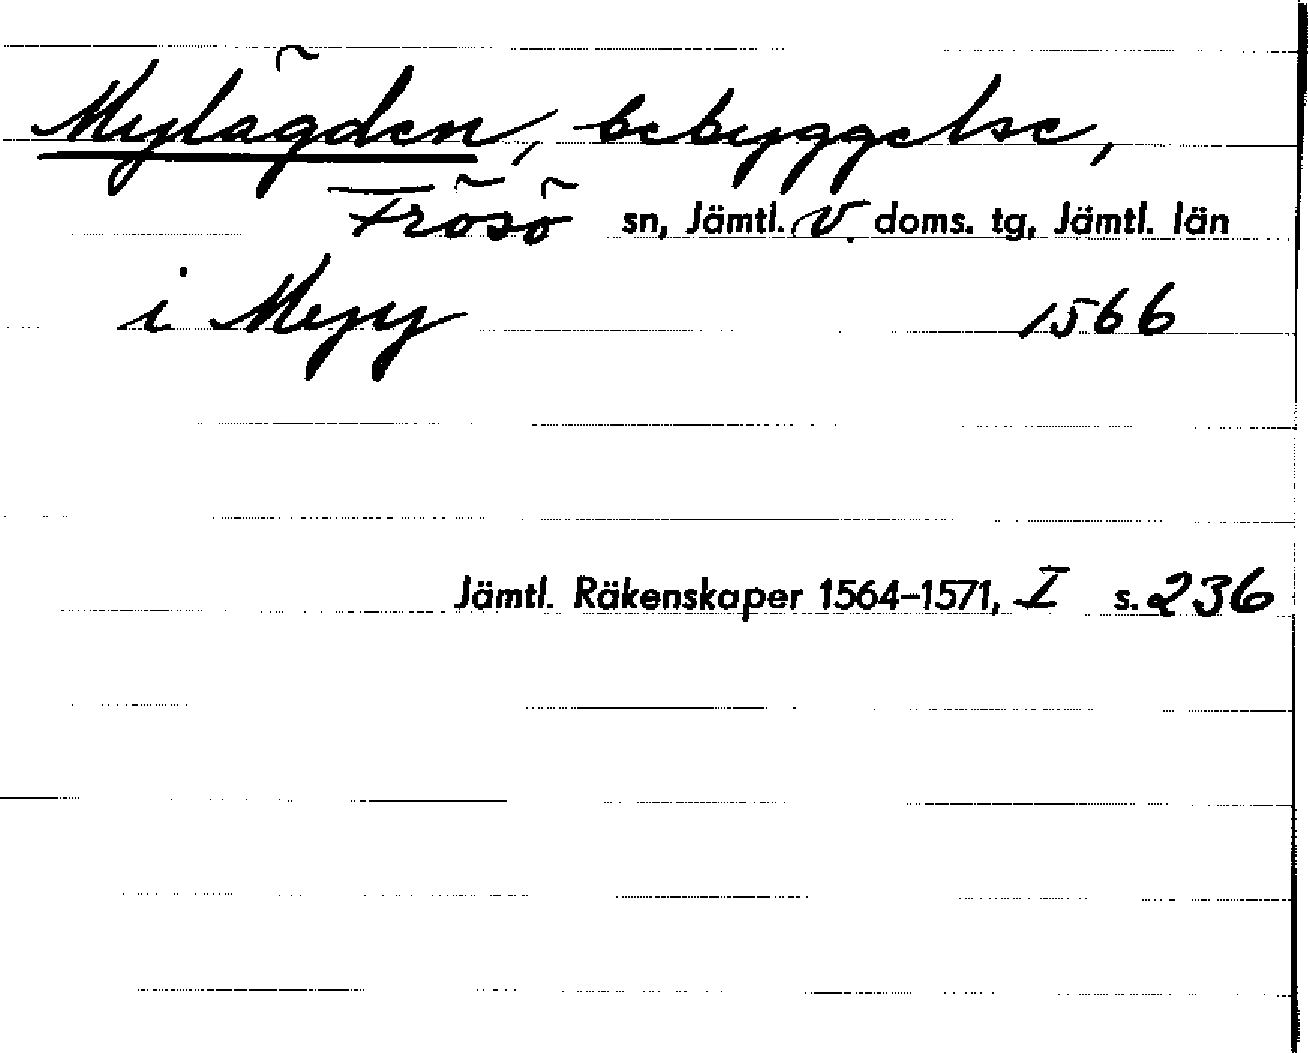 Mylägden, bebyggelse,
Frösö sn, Jämtl. V. doms. tg, Jämtl. län
i Myy 1566
Jämtl. Räkenskaper 1564-1571, I s. 236